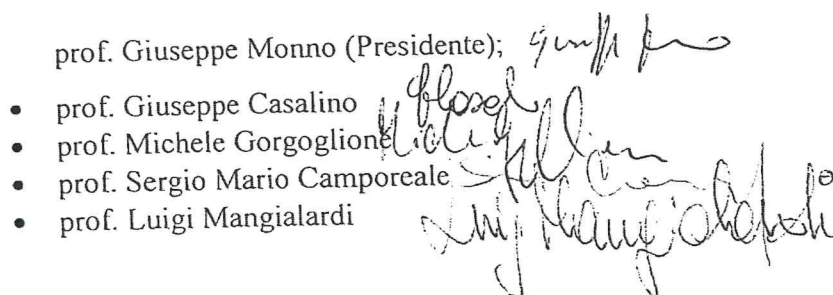 prof. Giuseppe Monno (Presidente);
• prof. Giuseppe Casalino
• prof. Michele Gorgoglione
• prof. Sergio Mario Camporeale
• prof. Luigi Mangialardi Luigi Mangialardi